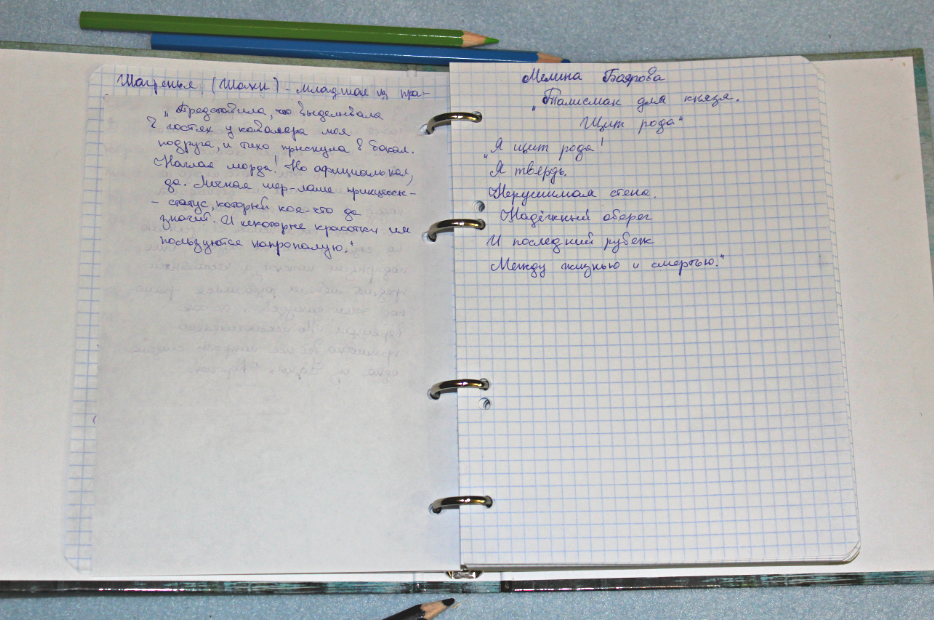 (Шахи) - младшая из пра-
„Представила, что выделывала
в гостях у кавалера моя
подруга, и тихо прыснула в бокал.
Наглая морда! Но официальная,
да. Личная шер-лаше принцессы -
- статус, который кое-что да
значит. И некоторые красотки им
пользуются напропалую."
Мелина Боярова
„Талисман для князя.
Щит рода"
„Я щит рода!
Я твердь.
Нерушимая стена.
Надёжный оберег
И последний рубеж
Между жизнью и смертью."